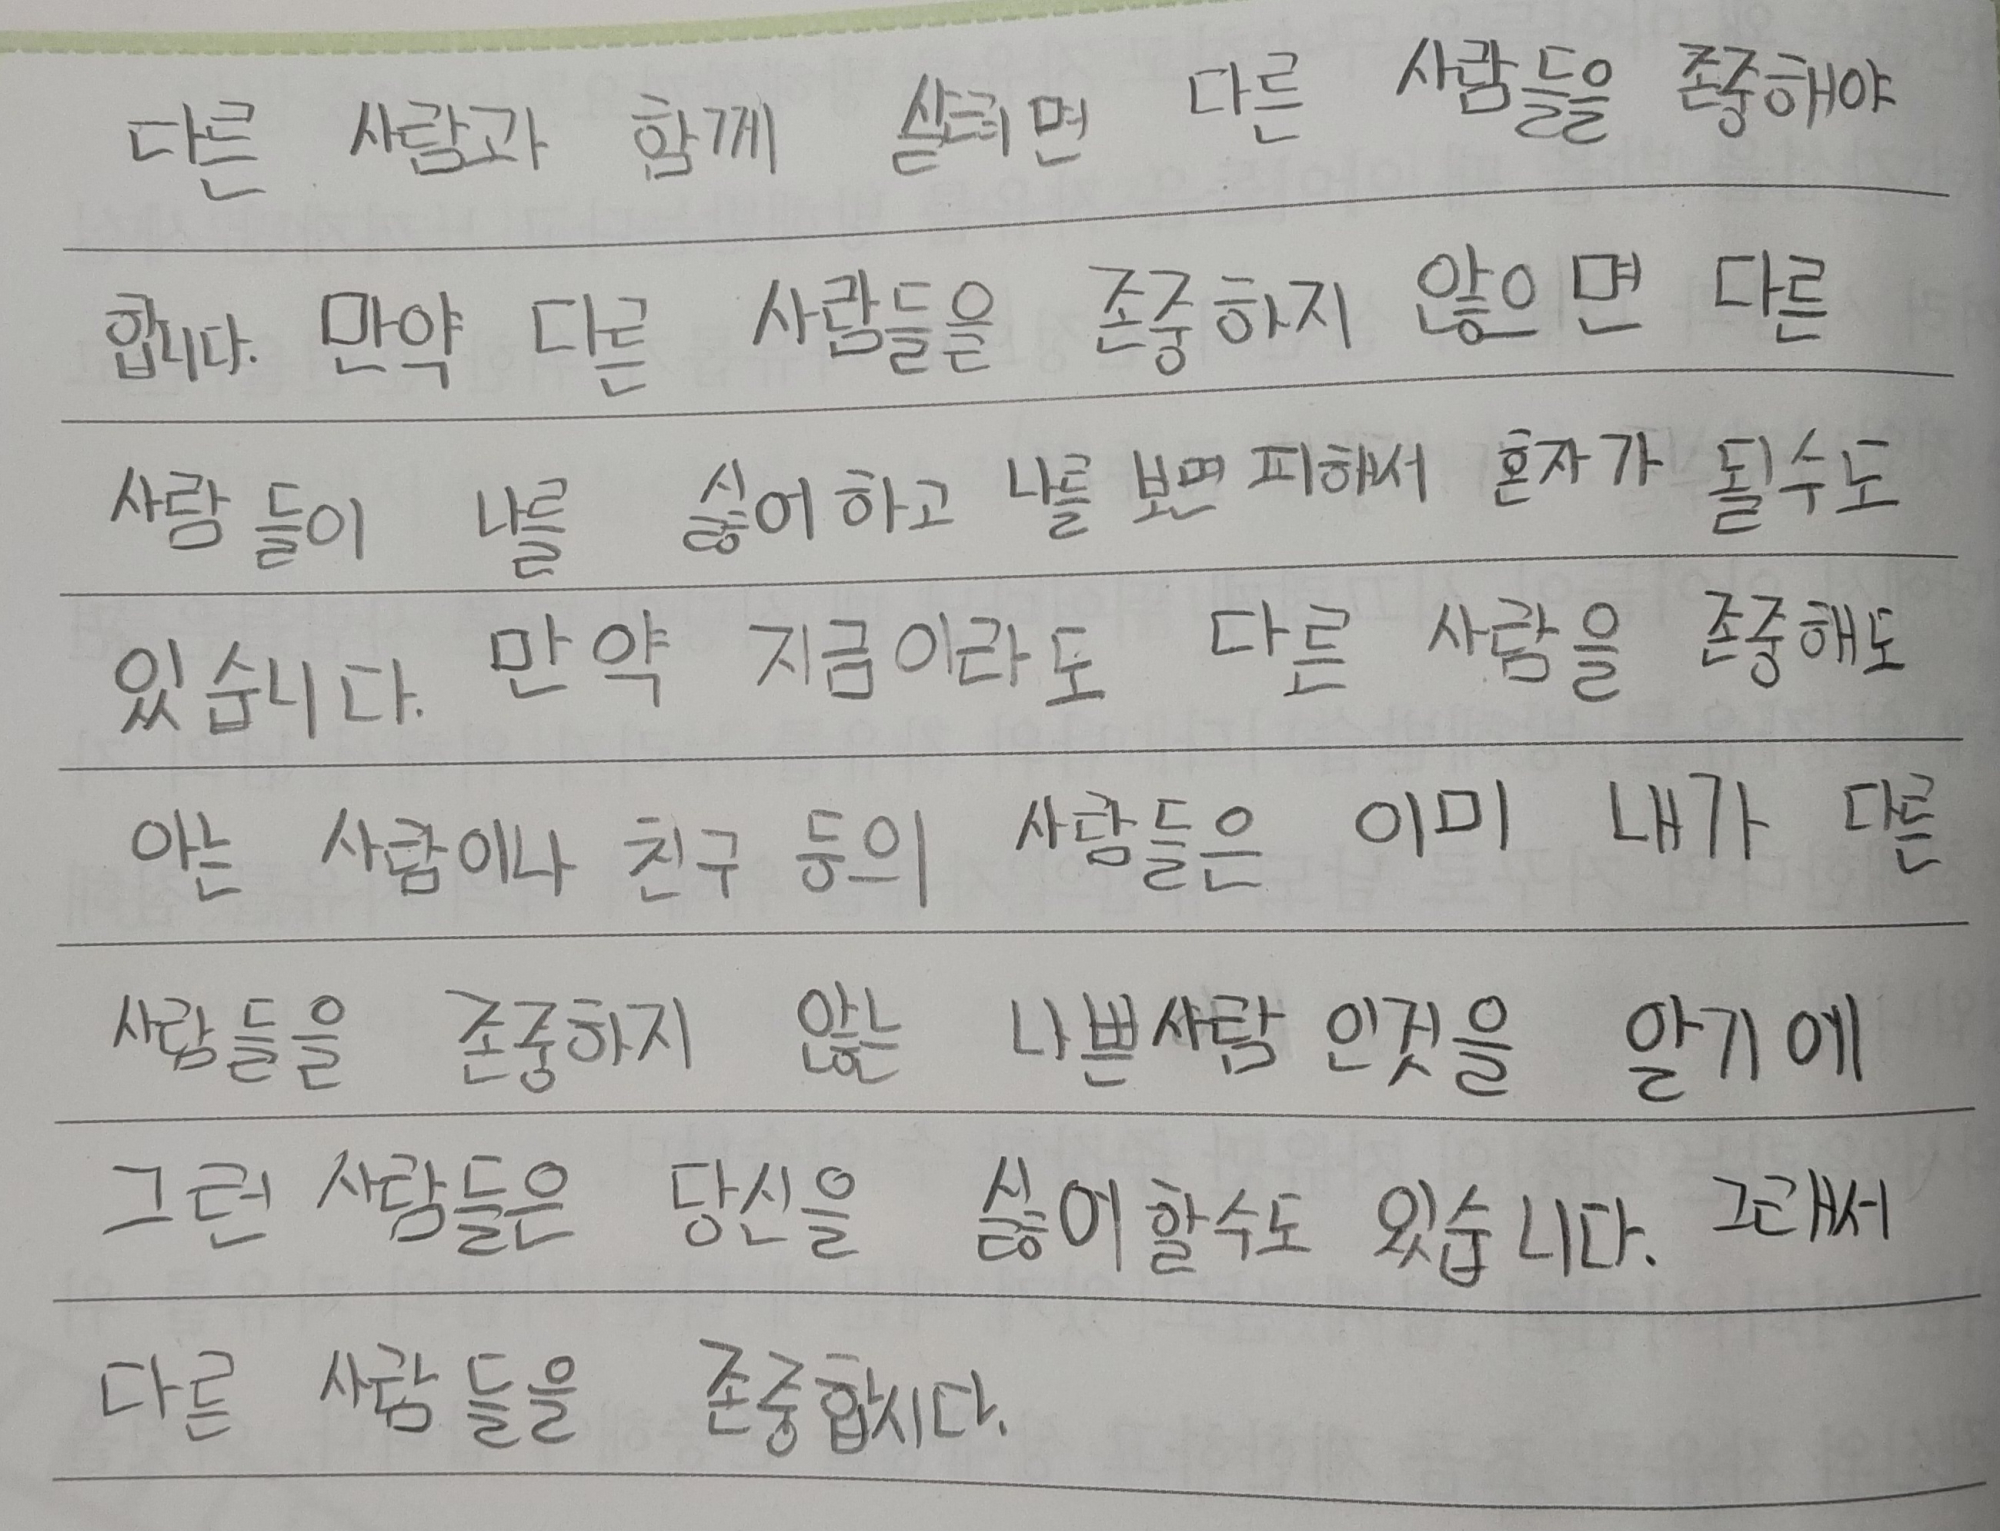 다른 사람과 함께 살려면 다른 사람들을 존중해야
합니다. 만약 다른 사람들을 존중하지 않으면 다른
사람들이 나를 싫어하고 나를 보면 피해서 혼자가 될수도
있습니다. 만약 지금이라도 다른 사람을 존중해도
아는 사람이나 친구 등의 사람들은 이미 내가 다른
사람들을 존중하지 않는 나쁜사람 인것을 알기에
그런 사람들은 당신을 싫어할수도 있습니다. 그래서
다른 사람들을 존중합시다.